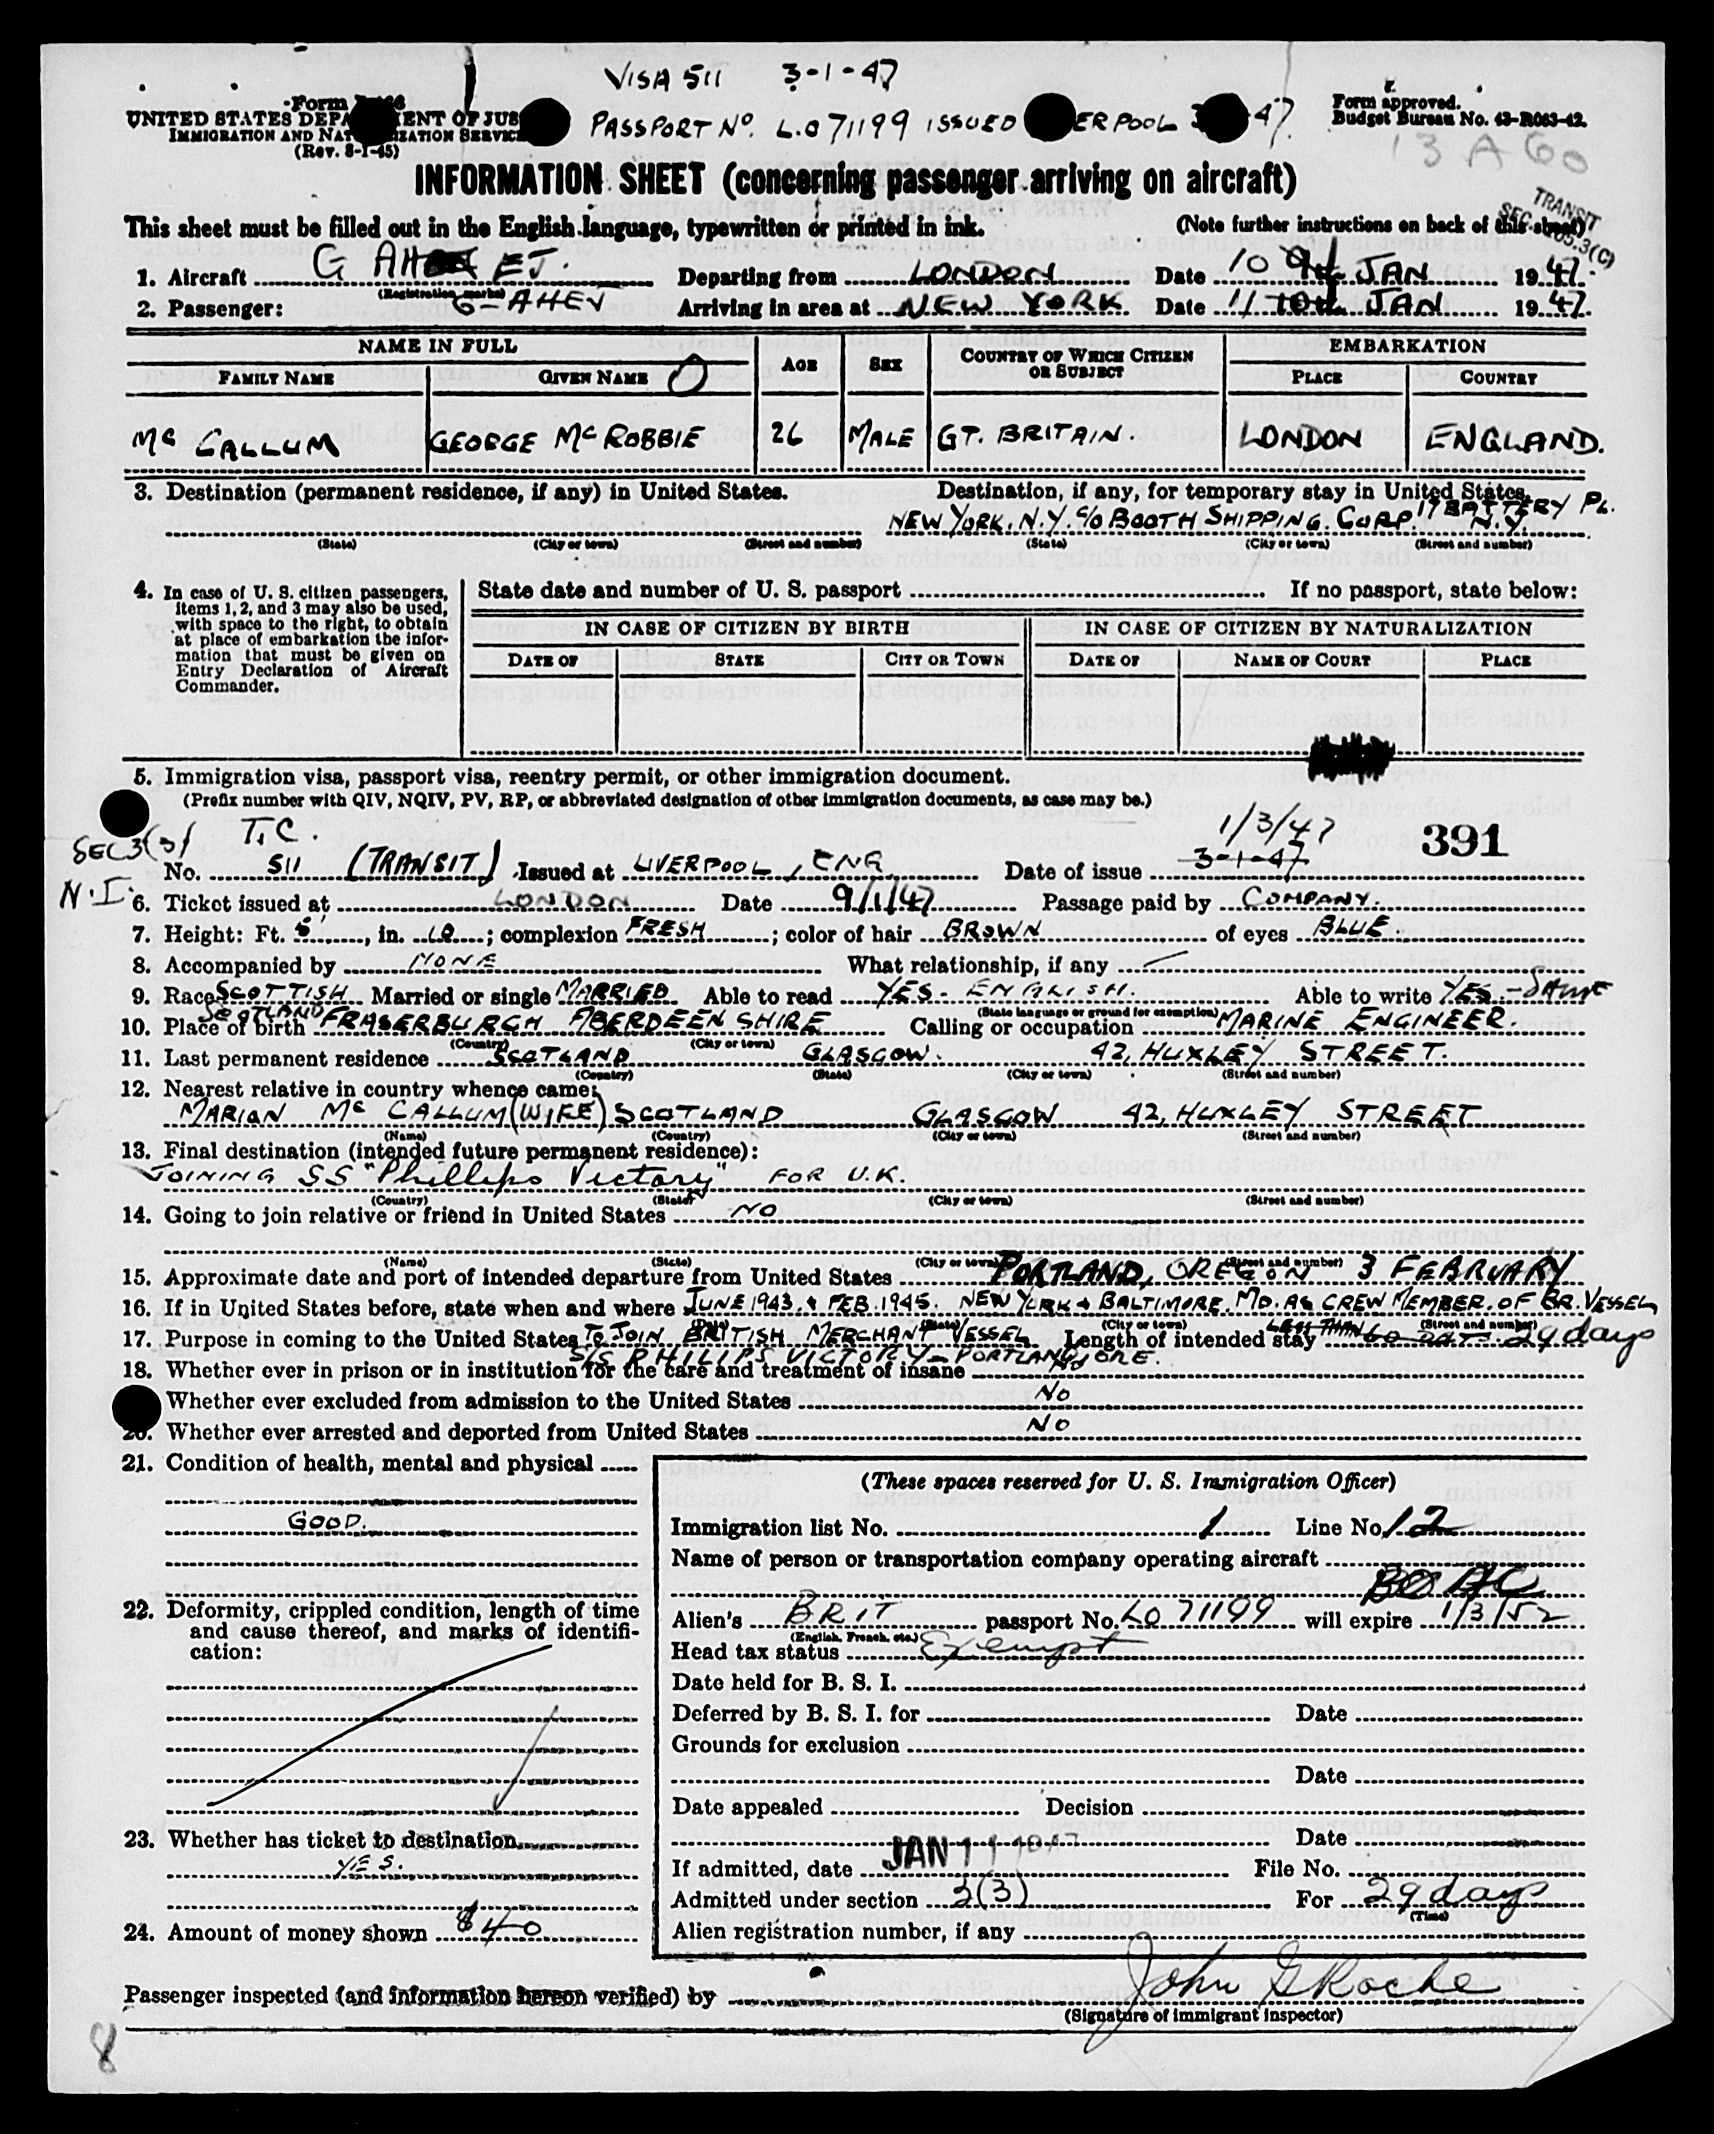 VISA 511 3-1-47
Form
UNITED STATES DEPA ENT OF JUS
IMMIGRATION AND NAT IZATION SERVICE
(Rev. 8-1-45)
PASSPORT No. L.071199 ISSUED ERPOOL 47.
Form approved.
Budget Bureau No. 43-R063-42.
13 A 60
INFORMATION SHEET (concerning passenger arriving on aircraft)
TRANSIT
SEC. 105.3(C)
This sheet must be filled out in the English language, typewritten or printed in ink. (Note further instructions on back of this sheet)
1. Aircraft G AH EJ. Departing from LONDON Date 10 JAN 1947.
(Registration marks)
2. Passenger: G-AHEJ Arriving in area at NEW YORK Date 11 10th JAN 1947.
NAME IN FULL AGE SEX COUNTRY OF WHICH CITIZEN OR SUBJECT EMBARKATION
FAMILY NAME GIVEN NAME PLACE COUNTRY
Mc CALLUM GEORGE Mc ROBBIE 26 MALE GT. BRITAIN. LONDON ENGLAND.
3. Destination (permanent residence, if any) in United States. Destination, if any, for temporary stay in United States.
NEW YORK. N.Y. C/O BOOTH SHIPPING. CORP. 17 BATTERY PL. N.Y.
(State) (City or town) (Street and number) (State) (City or town) (Street and number)
4. In case of U. S. citizen passengers, items 1, 2, and 3 may also be used, with space to the right, to obtain at place of embarkation the information that must be given on Entry Declaration of Aircraft Commander.
State date and number of U. S. passport If no passport, state below:
IN CASE OF CITIZEN BY BIRTH IN CASE OF CITIZEN BY NATURALIZATION
DATE OF STATE CITY OR TOWN DATE OF NAME OF COURT PLACE
5. Immigration visa, passport visa, reentry permit, or other immigration document.
(Prefix number with QIV, NQIV, PV, RP, or abbreviated designation of other immigration documents, as case may be.)
SEC 3(3) T.C. 1/3/47 391
No. 511 (TRANSIT) Issued at LIVERPOOL, ENG. Date of issue 3-1-47
N.I.
6. Ticket issued at LONDON Date 9/1/47 Passage paid by COMPANY.
7. Height: Ft. 5, in. 10; complexion FRESH; color of hair BROWN of eyes BLUE.
8. Accompanied by NONE What relationship, if any
9. Race SCOTTISH Married or single MARRIED Able to read YES - ENGLISH. Able to write YES - SAME
(State language or ground for exemption)
10. Place of birth SCOTLAND FRASERBURGH ABERDEENSHIRE Calling or occupation MARINE ENGINEER.
(Country) (City or town)
11. Last permanent residence SCOTLAND GLASGOW. 42, HUXLEY STREET.
(Country) (State) (City or town) (Street and number)
12. Nearest relative in country whence came:
MARION Mc CALLUM (WIFE) SCOTLAND GLASGOW 42, HUXLEY STREET
(Name) (Country) (City or town) (Street and number)
13. Final destination (intended future permanent residence):
JOINING SS "Phillips Victory" FOR U.K.
(Country) (State) (City or town) (Street and number)
14. Going to join relative or friend in United States NO
(Name) (State) (City or town) (Street and number)
15. Approximate date and port of intended departure from United States PORTLAND, OREGON 3 FEBRUARY
16. If in United States before, state when and where JUNE 1943 & FEB. 1945. NEW YORK & BALTIMORE. MD. AS CREW MEMBER. OF BR. VESSEL
(Date) (State) (City or town) (Street and number)
17. Purpose in coming to the United States TO JOIN BRITISH MERCHANT VESSEL Length of intended stay LESS THAN 60 DAYS 29 days
S/S PHILIPS VICTORY - PORTLAND, ORE.
18. Whether ever in prison or in institution for the care and treatment of insane No
Whether ever excluded from admission to the United States No
20. Whether ever arrested and deported from United States No
21. Condition of health, mental and physical
GOOD.
22. Deformity, crippled condition, length of time and cause thereof, and marks of identification:
23. Whether has ticket to destination
YES.
24. Amount of money shown $40
(These spaces reserved for U. S. Immigration Officer)
Immigration list No. 1 Line No. 12
Name of person or transportation company operating aircraft
BOAC
Alien's BRIT passport No. LO 71199 will expire 1/3/52
(English, French, etc.)
Head tax status Exempt
Date held for B. S. I.
Deferred by B. S. I. for Date
Grounds for exclusion
Date
Date appealed Decision
Date
If admitted, date JAN 11 1947 File No.
Admitted under section 3(3) For 29 days
(Time)
Alien registration number, if any
Passenger inspected (and information hereon verified) by John G Roche
(Signature of immigrant inspector)
8